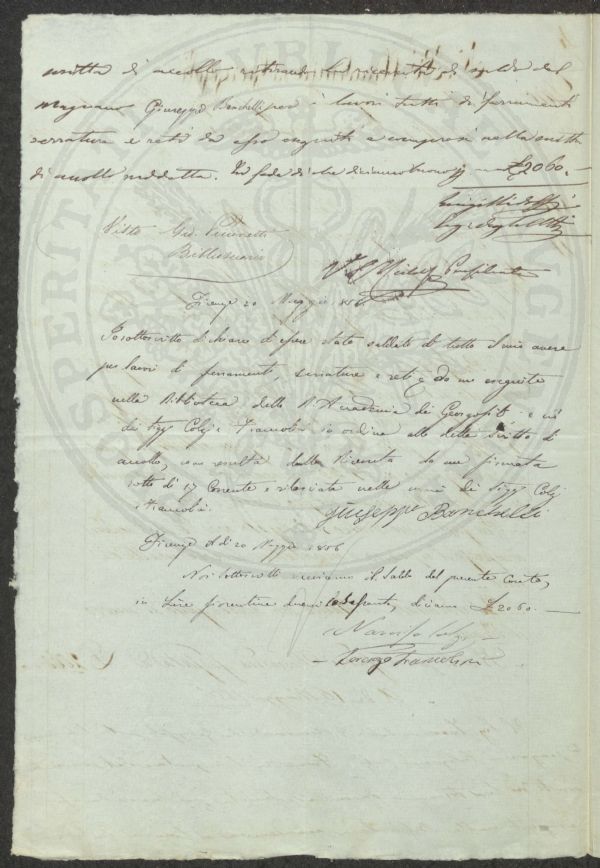 scritta di accollo ritirando la ricevuta di saldo del
magnano Giuseppe Banchelli per i lavori tutti di ferramenti
serrature e reti da esso eseguiti e compresi nella scritta
di accollo suddetta. In fede di che diciamo buono per £2060.–
Visto Gio.
Bibliotecario
Firenze 20 Maggio
Io sottoscritto dichiaro di essere stato saldato di tutto il mio avere
per lavori di ferramenti, serrature e reti da me eseguite
nella Biblioteca della R. Accademia dei Georgofili e ciò
dai Sigg. Colzi e Francolini in ordine alla detta Scritta di
accollo, come resulta dalla Ricevuta da me firmata
sotto dì 17 Corrente e rilasciata nelle mani dei Sigg. Colzi
e Francolini.
Giuseppe Banchelli
Firenze A dì 20 Maggio 1806
Noi sottoscritti riceviamo il Saldo del presente Conto,
in Lire fiorentine duemilasessanta, diciamo £2060.–
Narciso Colzi
Lorenzo Francolini
PROSPERITATI PUBLICAE AUGENDAE